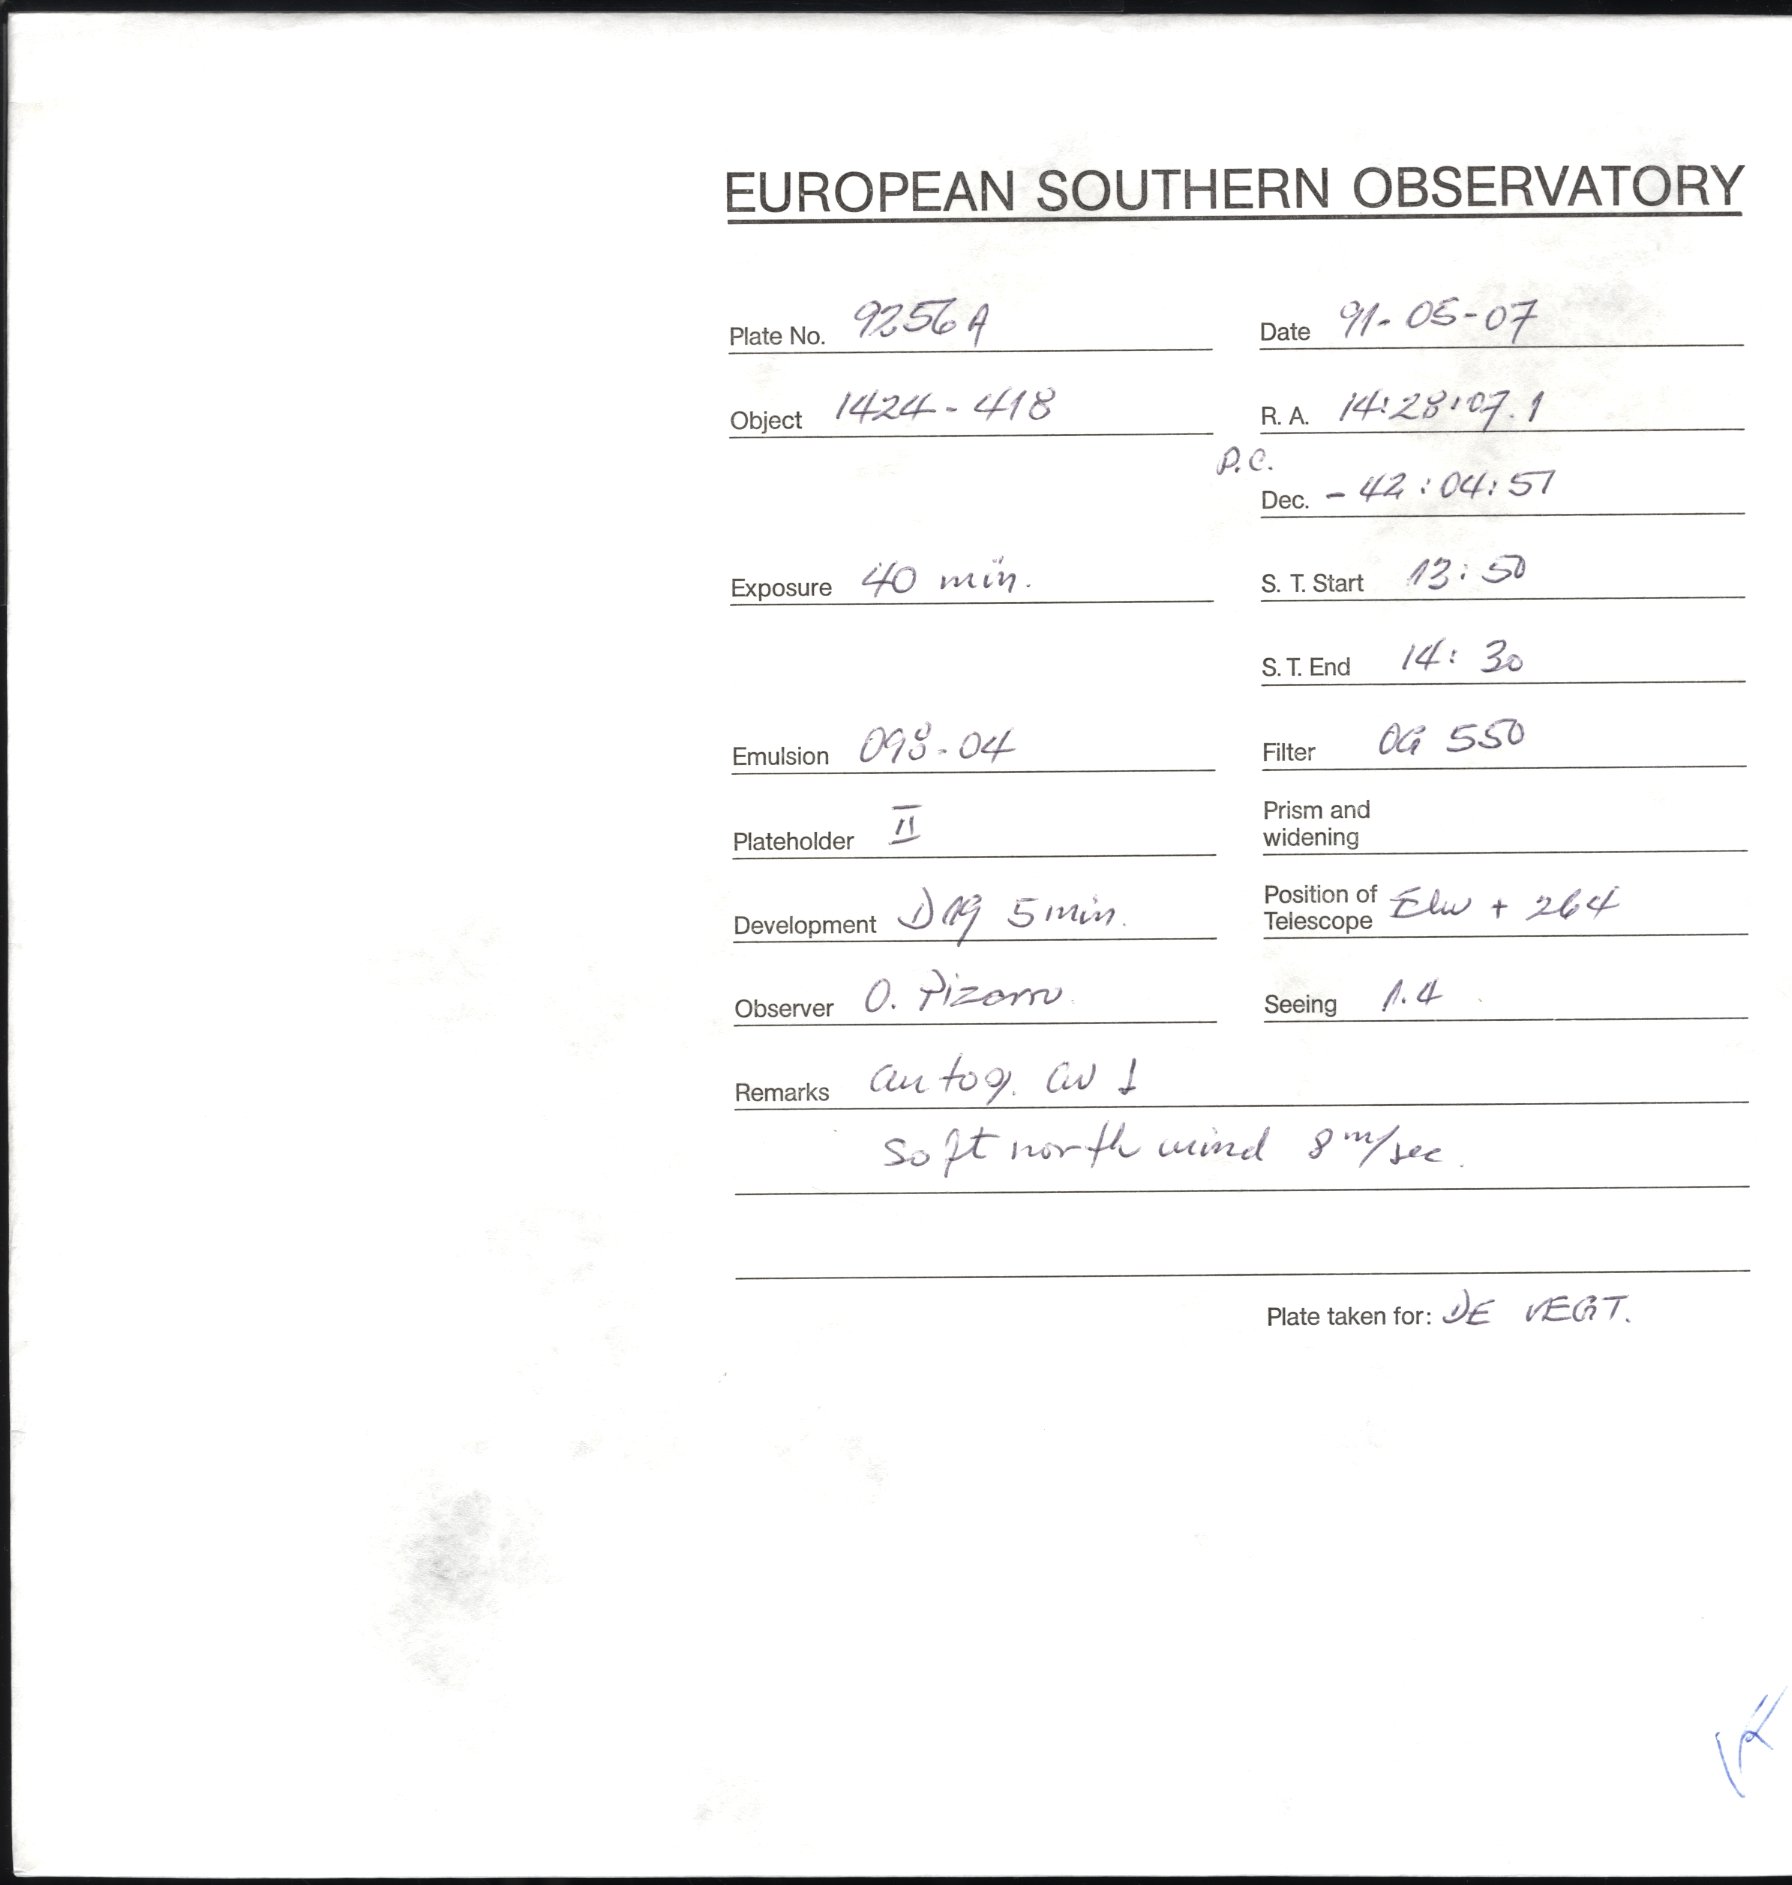 EUROPEAN SOUTHERN OBSERVATORY
Plate No. 9256 A Date 91-05-07
Object 1424-418 R. A. 14:28:07.1
P.C.
Dec. -42:04:51
Exposure 40 min. S. T. Start 13:50
S. T. End 14:30
Emulsion 098-04 Filter OG 550
Plateholder II Prism and
widening
Development D19 5 min. Position of
Telescope + 264
Observer O. Pizarro Seeing 1.4
Remarks autog.
soft north wind 8 m/sec.
Plate taken for: DE VEGT.